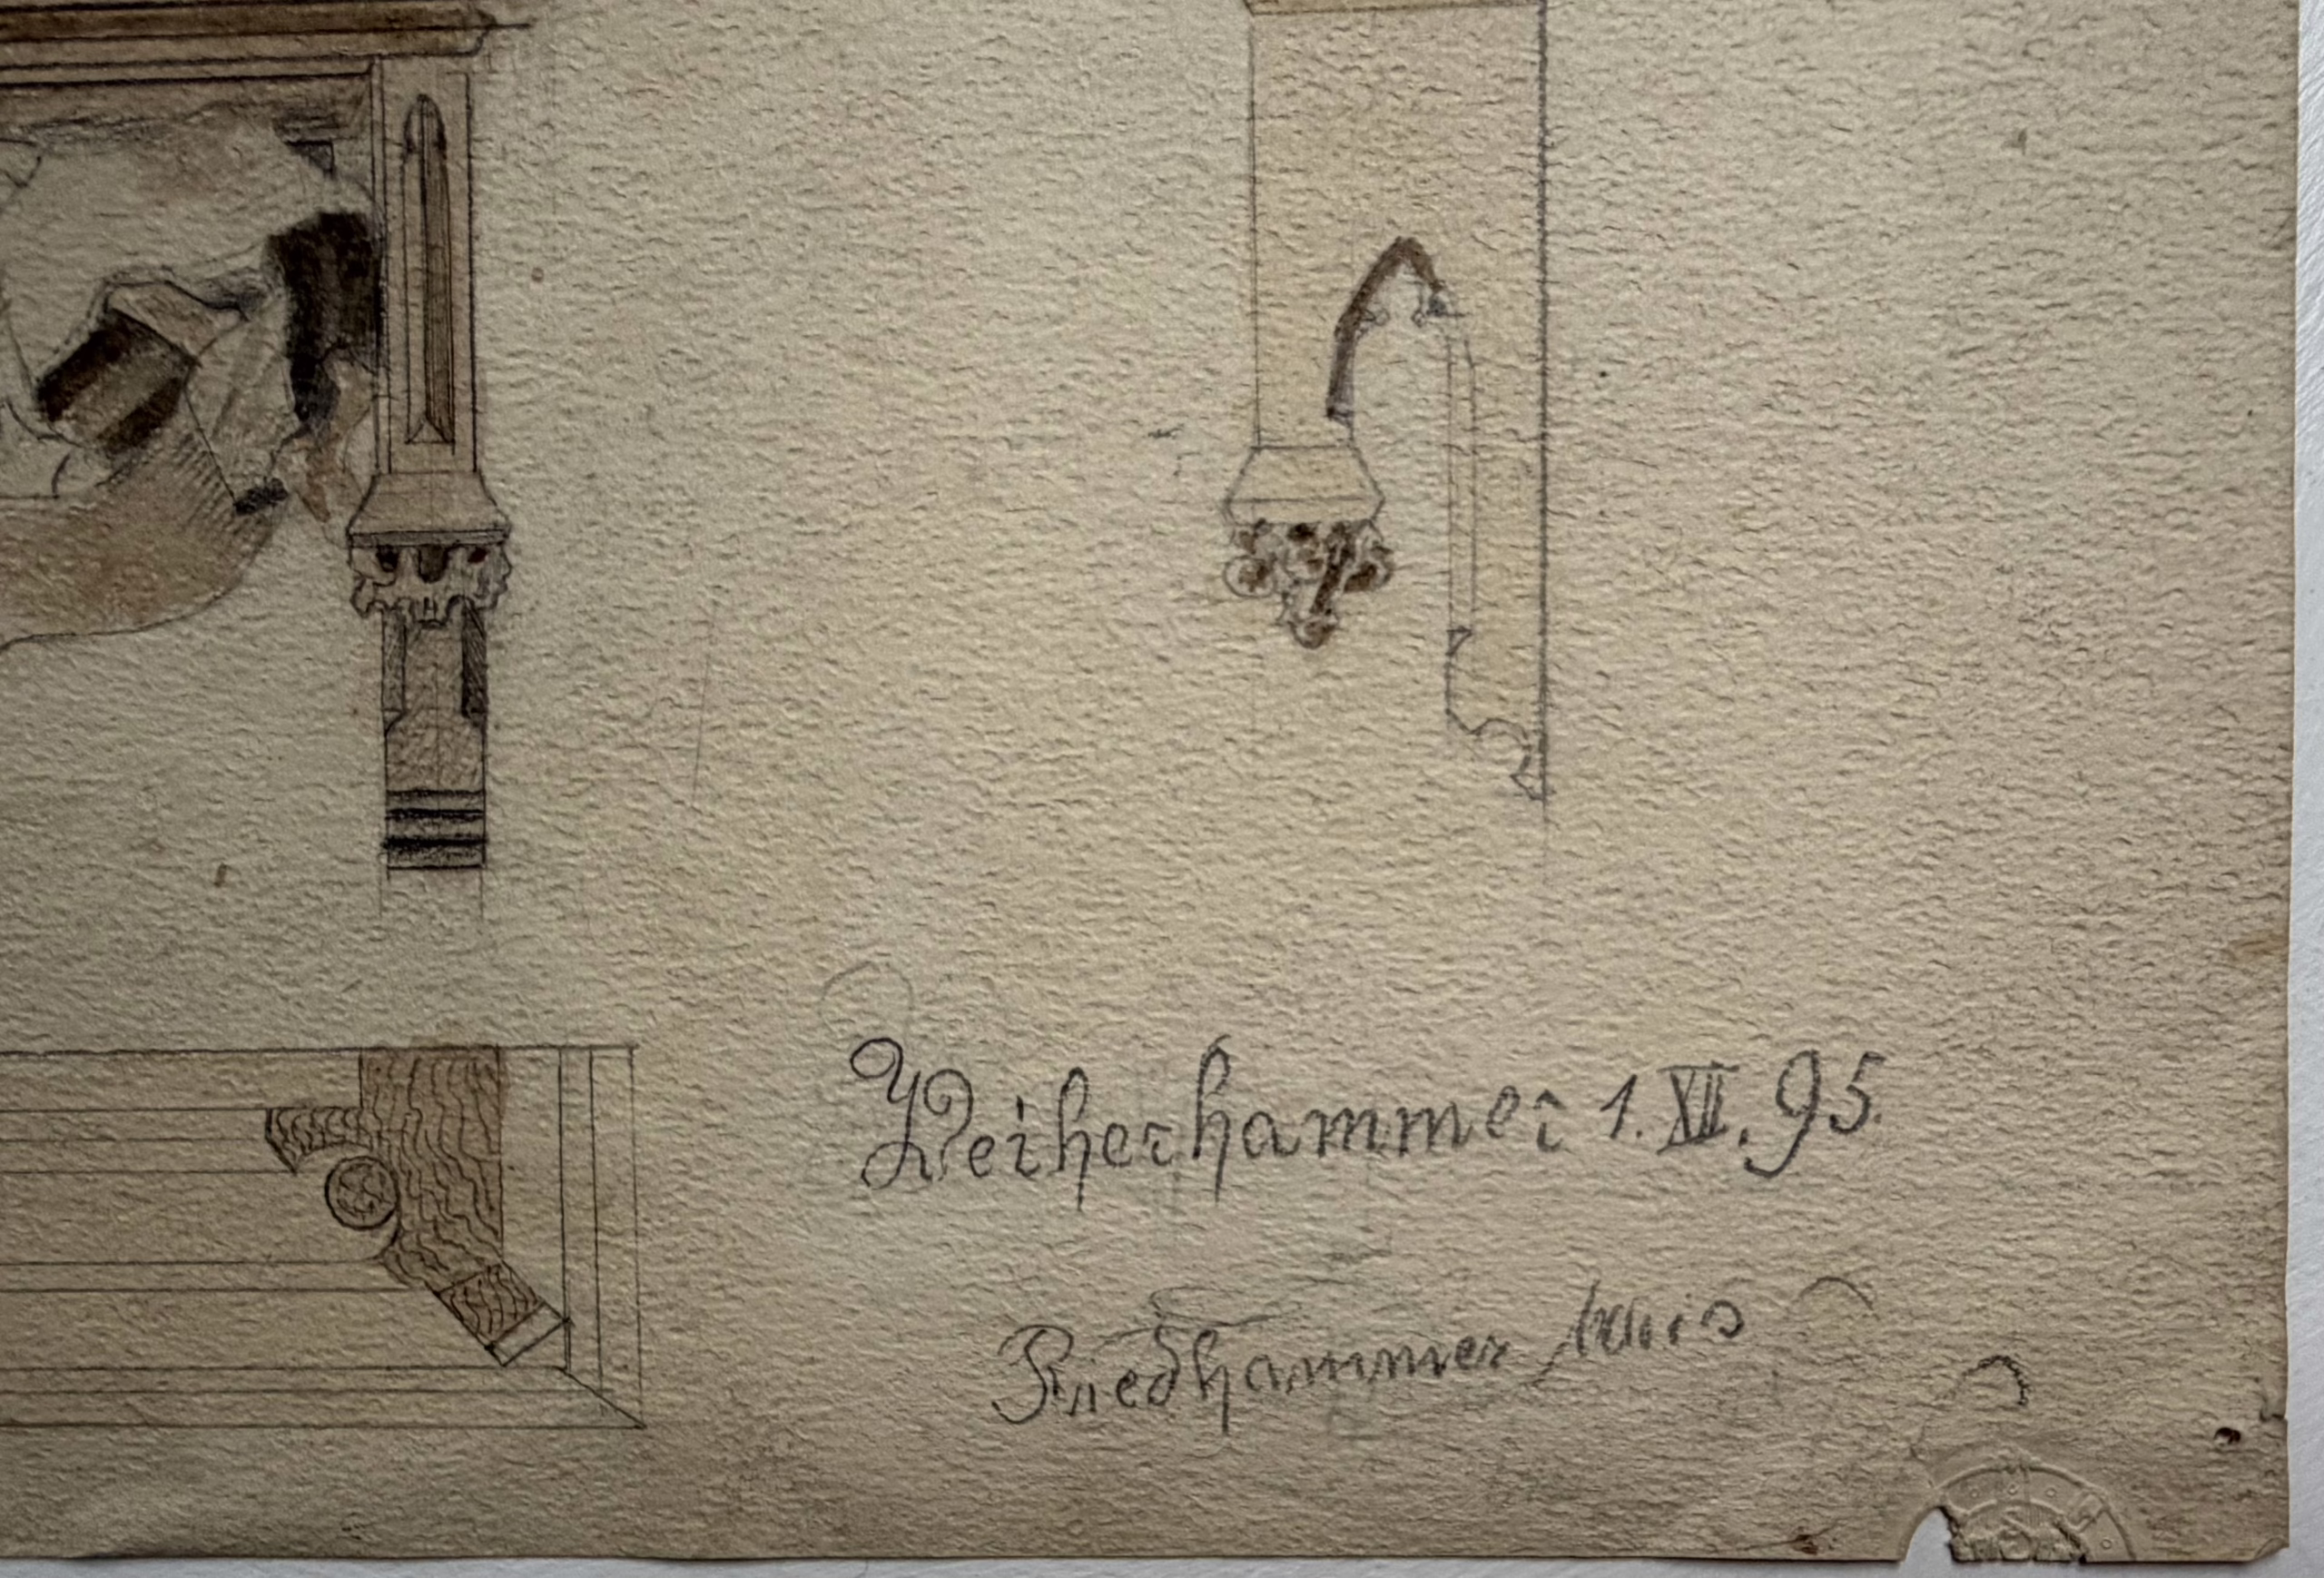 Weiherhammer 1. XII. 95.
Riedhammer Louis